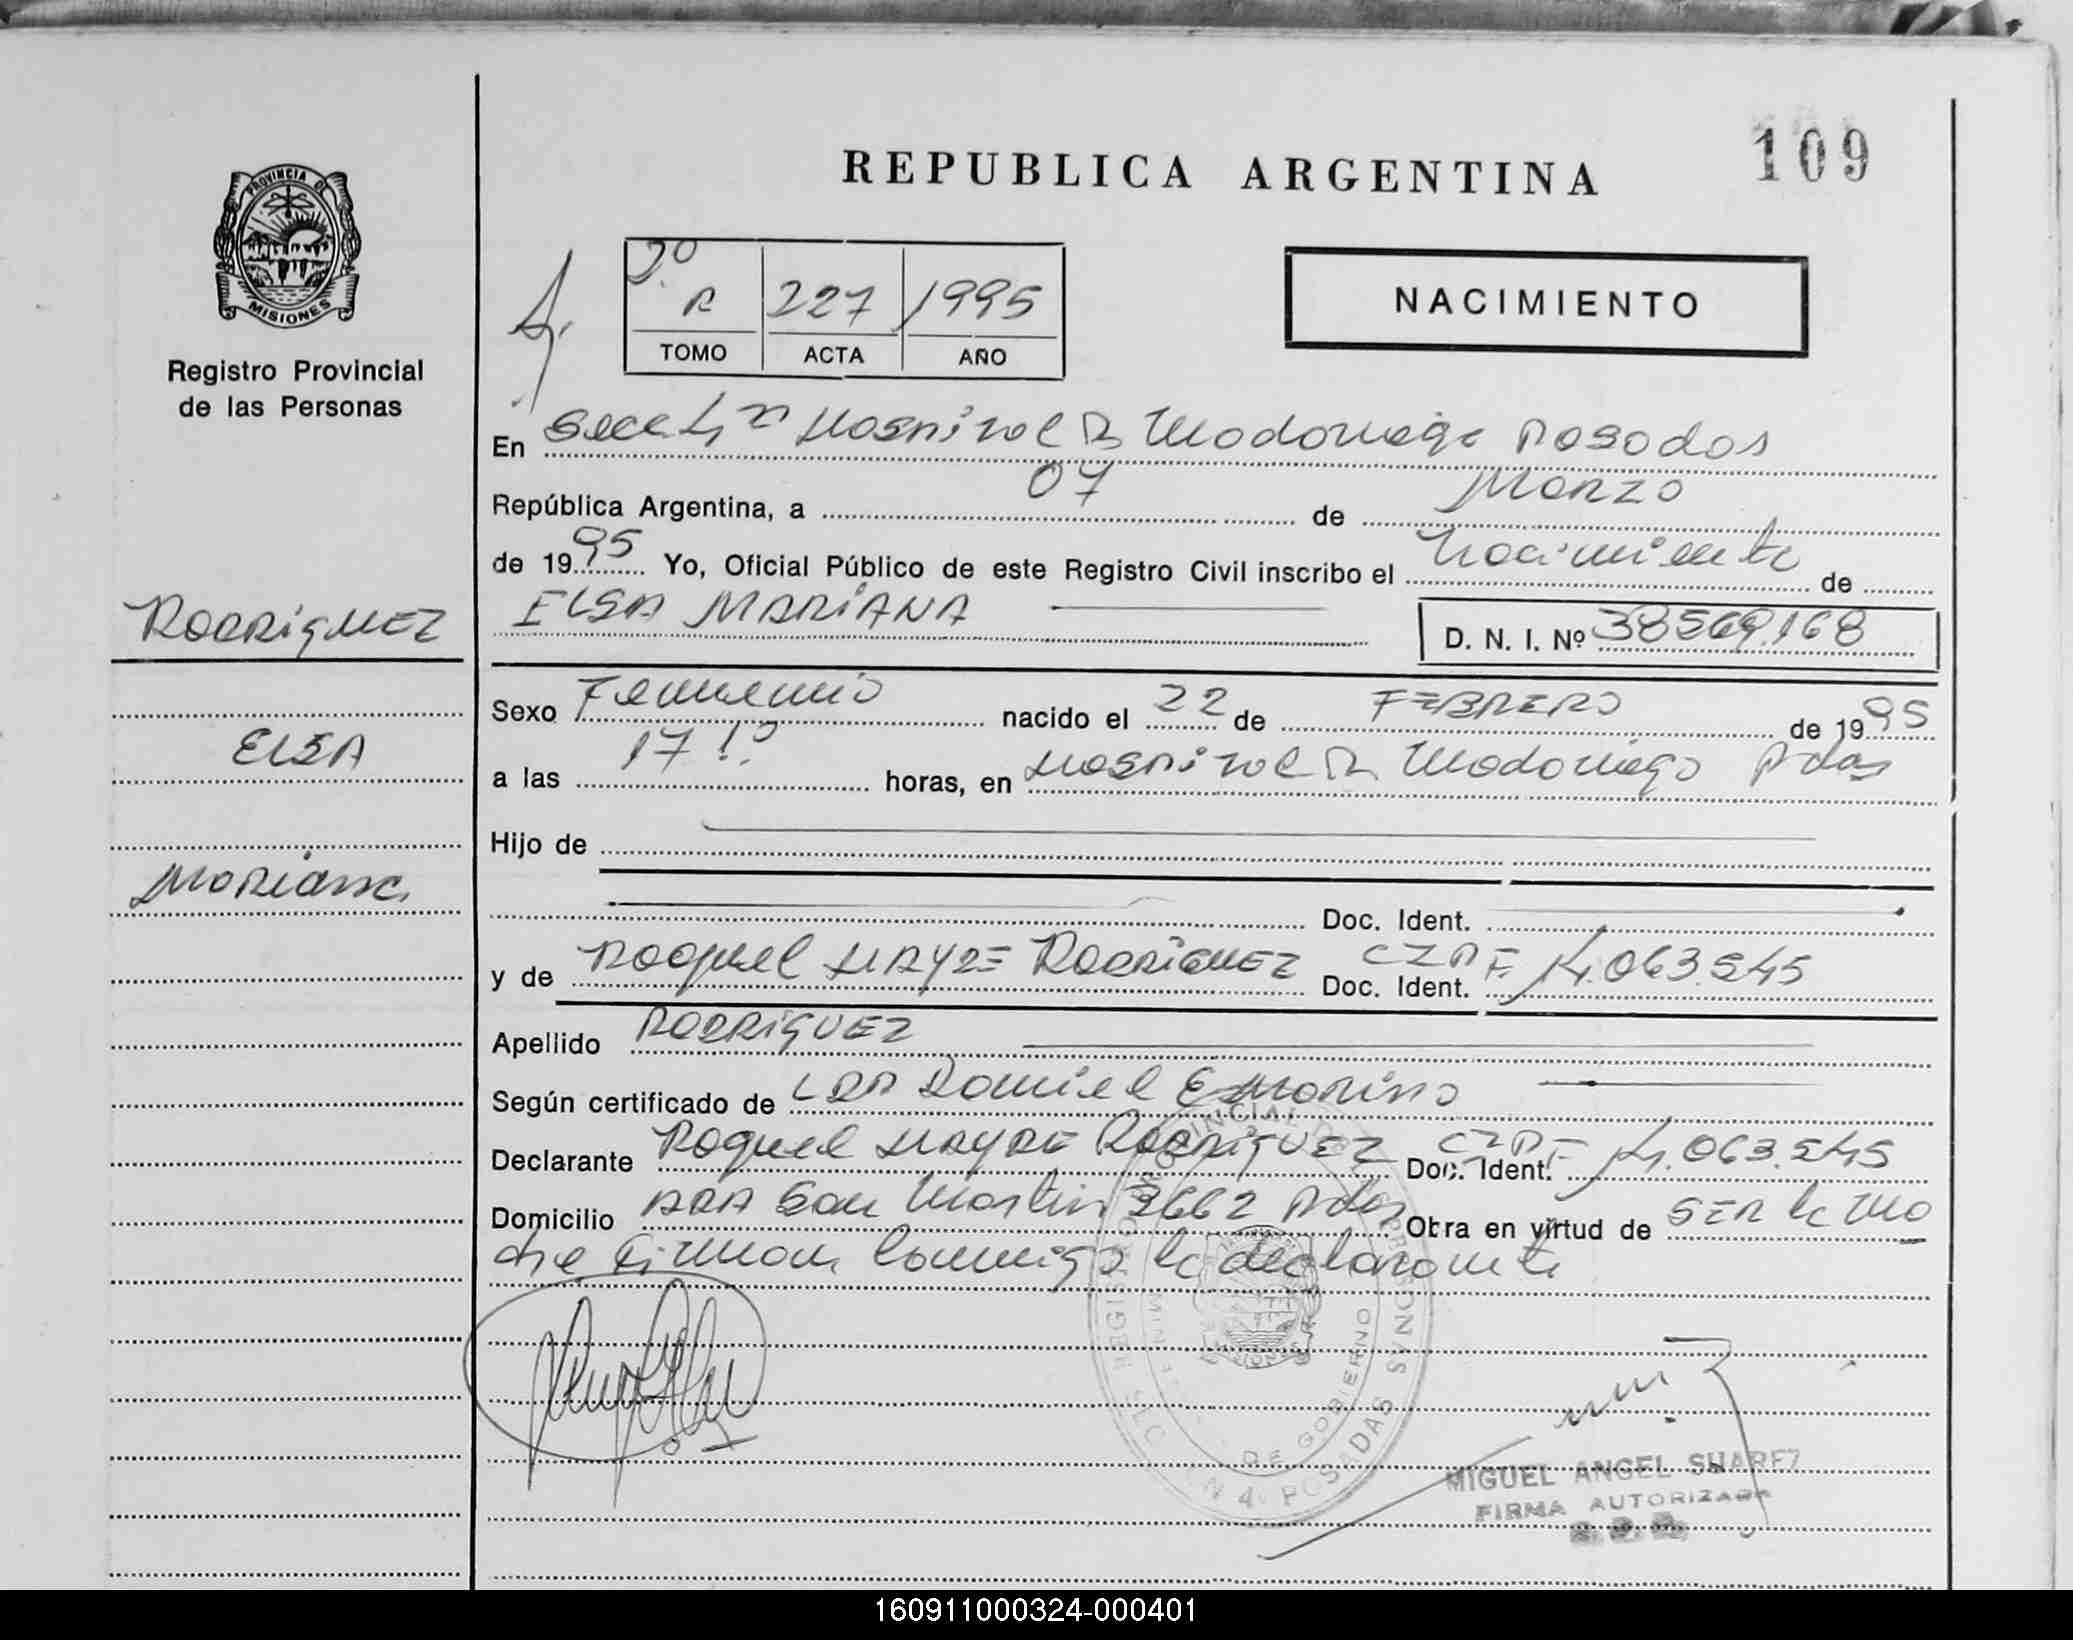 109
REPUBLICA ARGENTINA
PROVINCIA DE
MISIONES
Registro Provincial
de las Personas
2º R 227 1995
TOMO ACTA AÑO
NACIMIENTO
En Secc 4ta Hospital R Madariaga Posadas
República Argentina, a 07 de Marzo
de 1995 Yo, Oficial Público de este Registro Civil inscribo el Nacimiento de
ELSA MARIANA D. N. I. Nº 38569.168
RODRIGUEZ
ELSA
Mariana
Sexo Femenino nacido el 22 de FEBRERO de 1995
a las 17 horas, en Hospital R Madariaga Pdas
Hijo de
Doc. Ident.
y de Raquel HAYDE RODRIGUEZ Doc. Ident. 063.545
Apellido RODRIGUEZ
Según certificado de Daniel E Morino
Declarante Raquel HAYDE RODRIGUEZ Doc. Ident. 063.545
Domicilio San Martin 2662 Pdas Obra en virtud de SER la Ma
dre Firman Conmigo la declarante
DE GOBIERNO
POSADAS
MIGUEL ANGEL SUAREZ
FIRMA AUTORIZADA
160911000324-000401